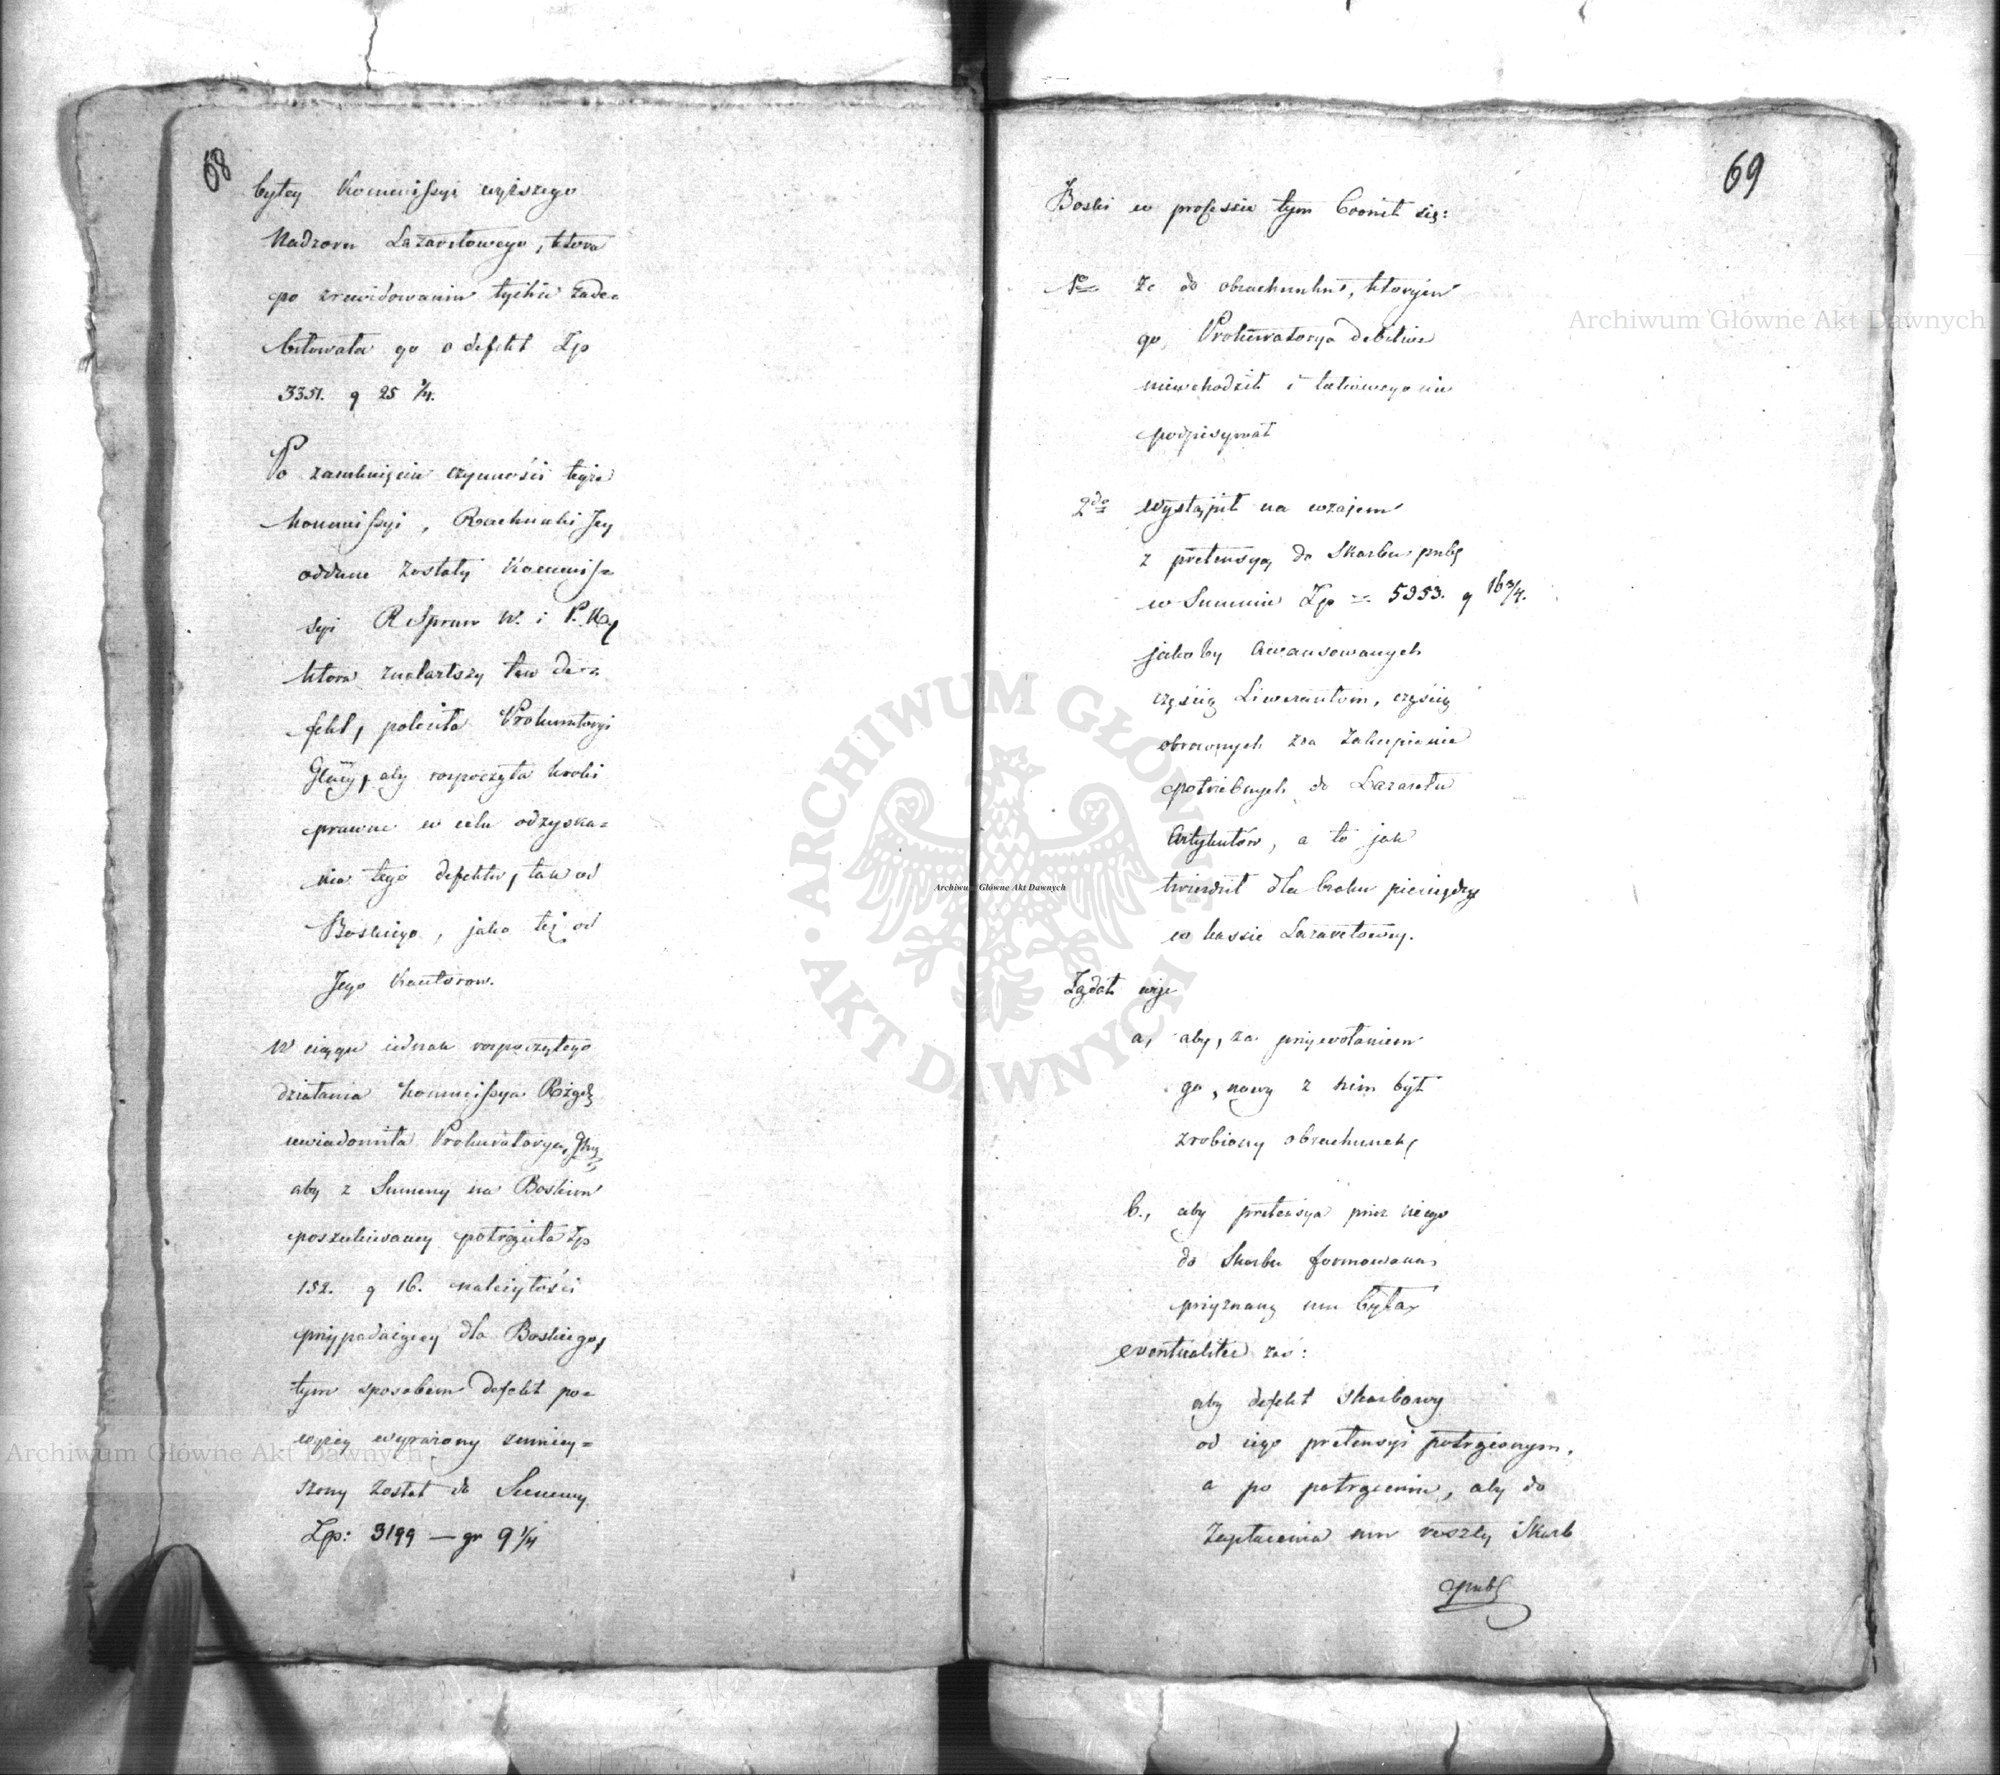 68
byłey Kommissyi wyższego
Nadzoru Lazaretowego, ktora
po zrewidowaniu tychże zade=
bitowała go o defekt Zp
3351. g 25 1/4.
Po zamknięciu czynności teyże
Kommissyi, Rachunki Jey
oddane zostały Kommis=
syi R Spraw W. i P.
ktora znalazłszy ten de=
fekt, poleciła Prokuratoryi
aby rozpoczęła kroki
prawne w celu odzyska=
nia tego defektu, tak od
Boskiego, jako też od
Jego Kautorow.
W ciągu iednak rozpoczętego
działania Kommissya Rząd
uwiadomiła Prokuratoryą
aby z Summy na Boskim
poszukiwaney potrąciła Zp
152. g 16. należytości
przypadaiącey dla Boskiego,
tym sposobem defekt po=
wyżey wyrażony zmniey=
szony został do Summy
Zp: 3199 — gr 9 1/4
69
Boski w processie tym bronił się:
1o że do obrachunku, ktorym
go Prokuratorya debituie
niewchodził i takowego nie
podpisywał
2do wystąpił na wzajem
z pretensyą do Skarbu publ
w Summie Zp = 5953. g 16 3/4.
jakoby awansowanych
częścią Liwerantom, częścią
obroconych na zakupienie
potrzebnych do Lazaretu
Artykułów, a to jak
twierdził dla braku pieniędzy
w kassie Lazaretowey.
Żądał więc
a, aby, za przywołaniem
go, nowy z nim był
zrobiony obrachunek,
b., aby pretensya przez niego
do Skarbu formowana,
przyznaną mu była,
eventualiter zaś:
aby defekt Skarbowy
od iego pretensyi potrąconym,
a po potrąceniu, aby do
zapłacenia mu reszty Skarb
publ
Archiwum Główne Akt Dawnych
Archiwum Główne Akt Dawnych
Archiwum Główne Akt Dawnych
ARCHIWUM GŁÓWNE • AKT DAWNYCH •